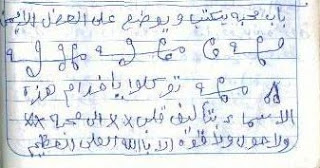 باب محبة يكتب ويوضع على العضد الايمن
توكلوا يا خدام هذه
الاسماء بتأليف قلب xx الى محبة xx
ولا حول ولا قوة الا بالله العلى العظيم